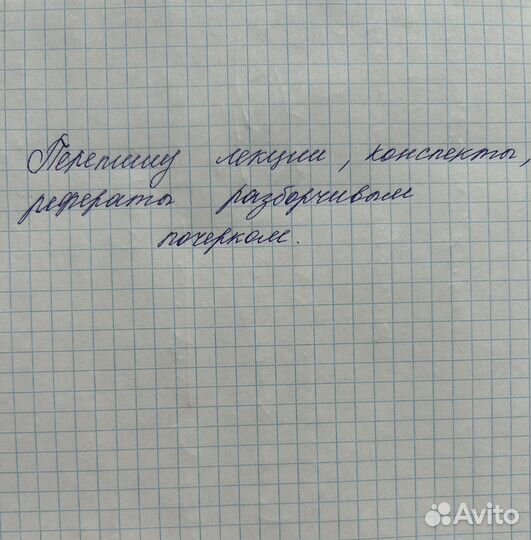 Перепишу лекции, конспекты,
рефераты разборчивым
почерком.
Avito